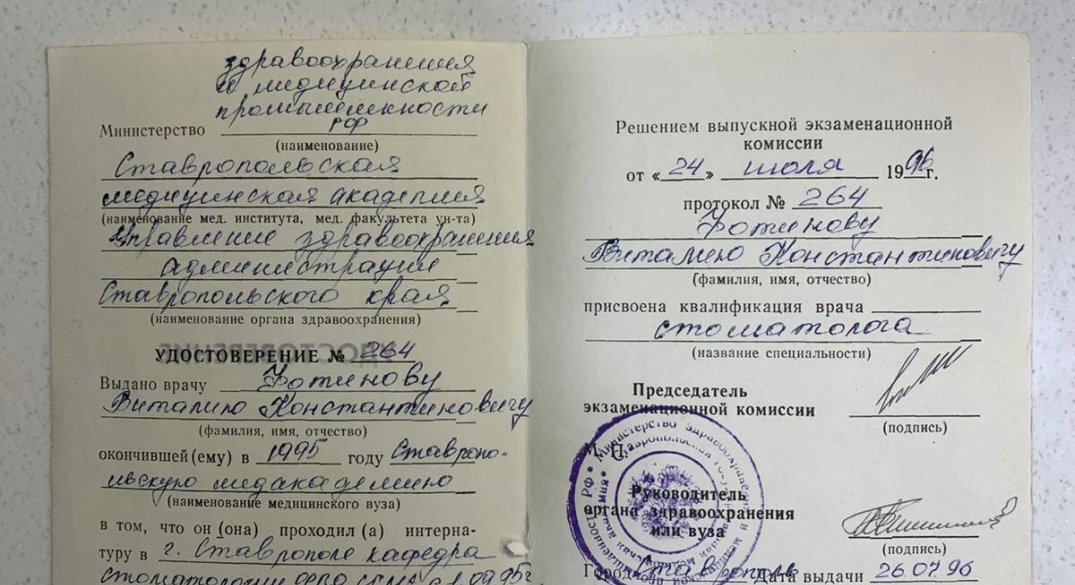 здравоохранения
и медицинской
промышленности
Министерство РФ
(наименование)
Ставропольская
медицинская академия
(наименование мед. института, мед. факультета ун-та)
Управление здравоохранения
администрации
Ставропольского края
(наименование органа здравоохранения)
УДОСТОВЕРЕНИЕ № 264
Выдано врачу Фотинову
Виталию Константиновичу
(фамилия, имя, отчество)
окончившей(ему) в 1995 году Ставропо-
льскую медакадемию
(наименование медицинского вуза)
в том, что он (она) проходил (а) интерна-
туру в г. Ставрополе кафедра
стоматологии
Решением выпускной экзаменационной
комиссии
от «24» июля 1996 г.
протокол № 264
Фотинову
Виталию Константиновичу
(фамилия, имя, отчество)
присвоена квалификация врача
стоматолога
(название специальности)
Председатель
экзаменационной комиссии
(подпись)
М. П.
Руководитель
органа здравоохранения
или вуза
(подпись)
Город Ставрополь Дата выдачи 26.07.96